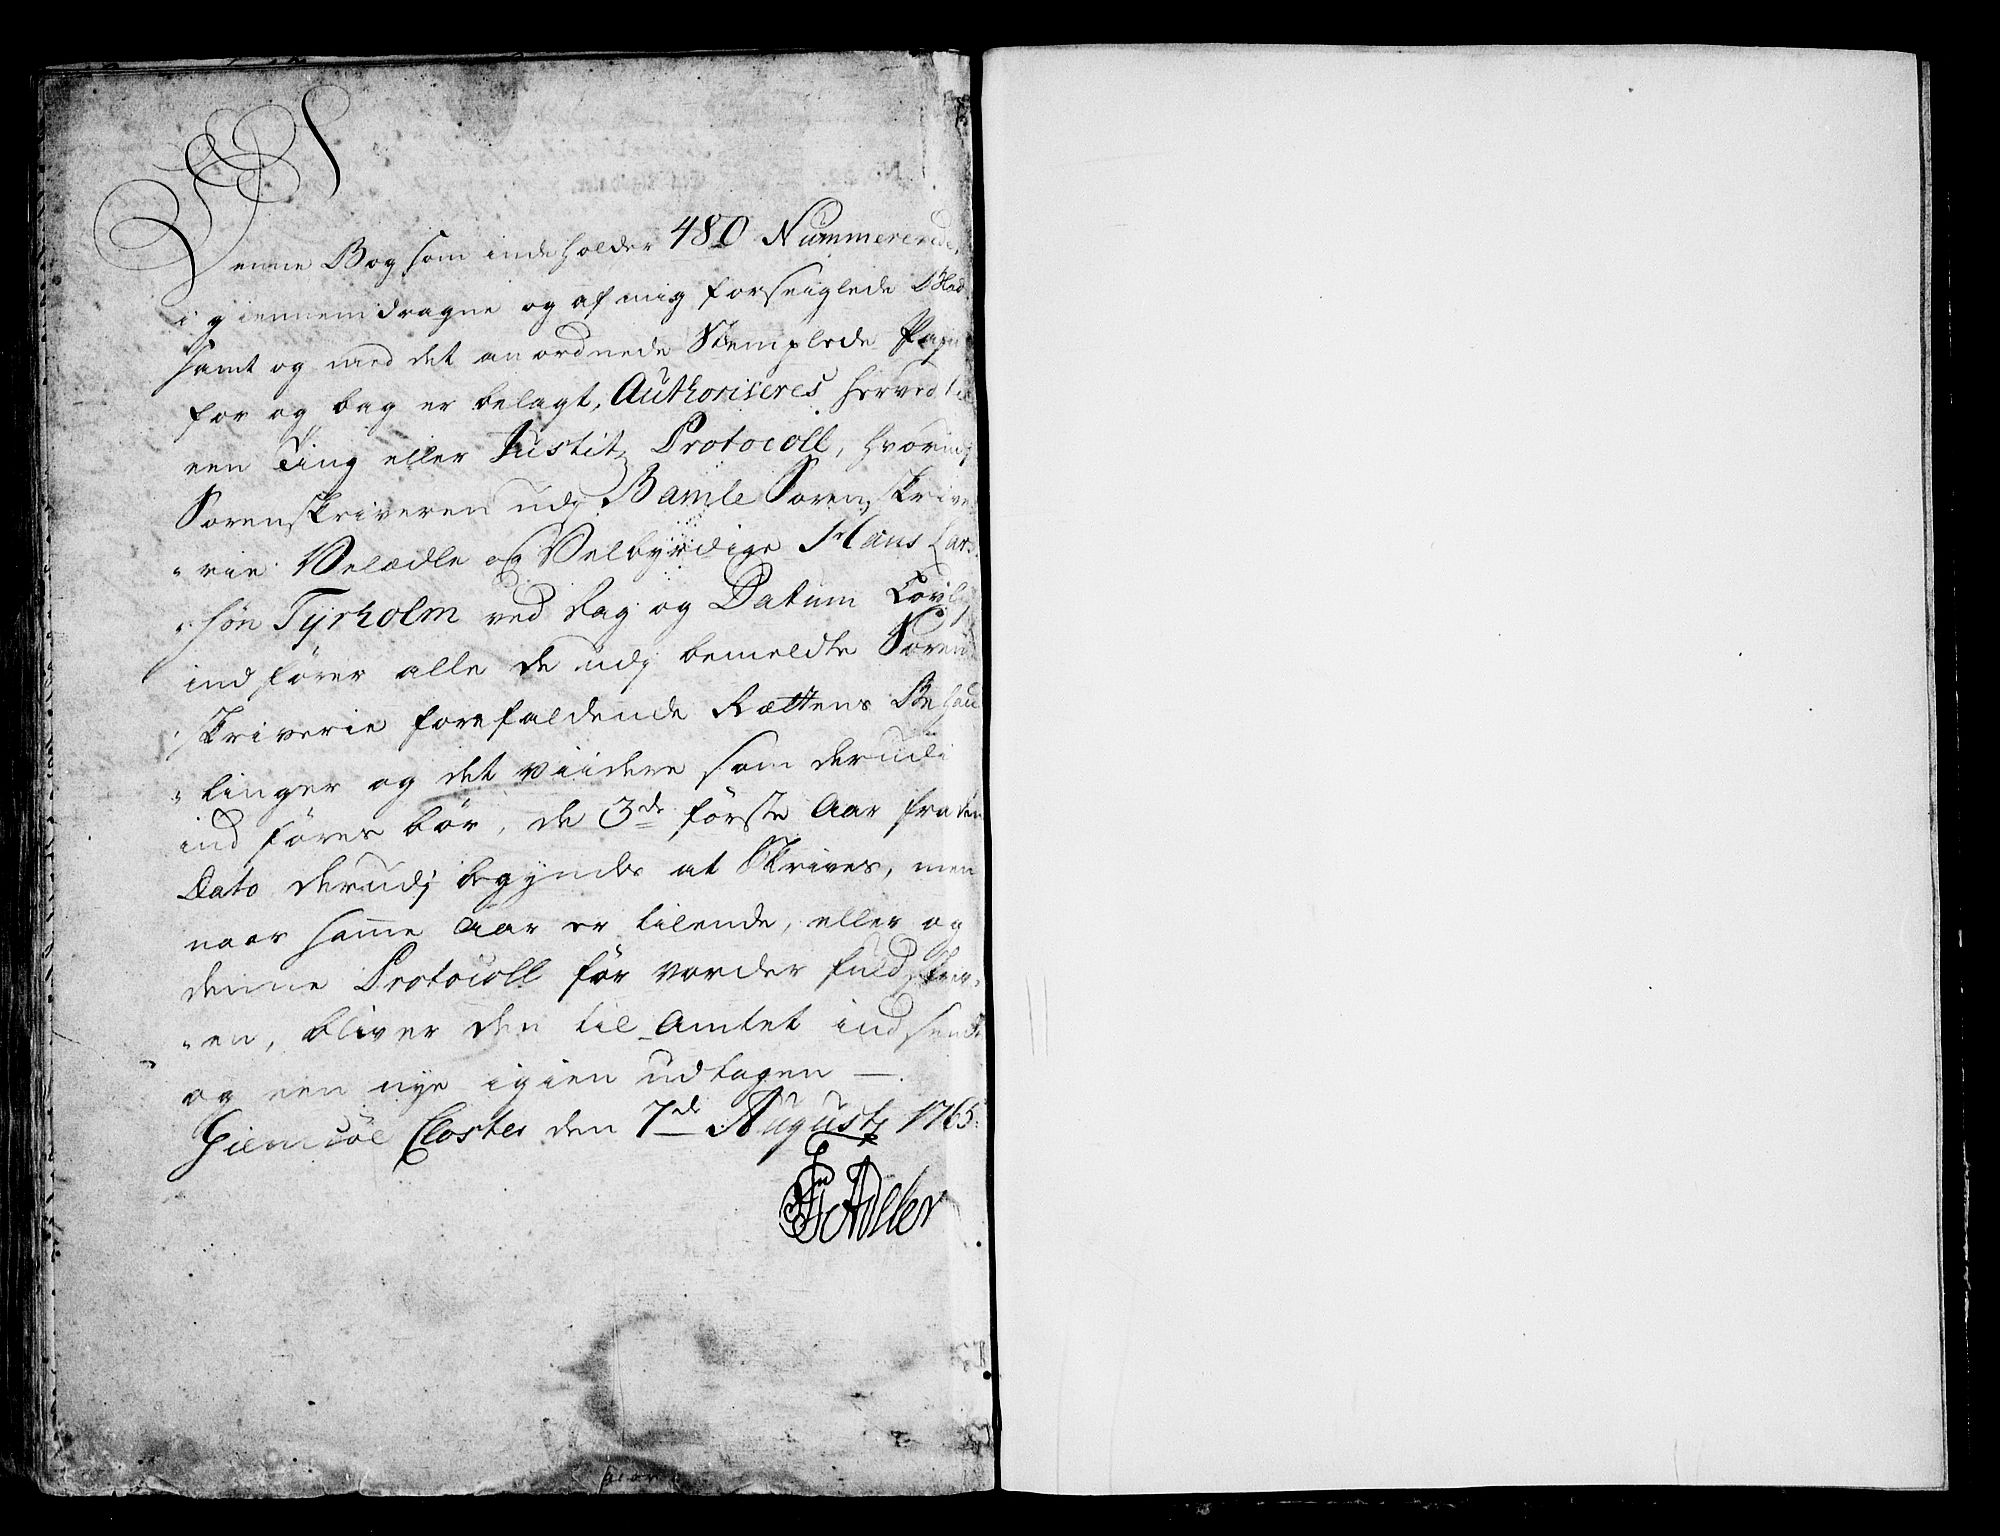 Denne Bog som indeholder 480 Nummererede,
igiennemdragne og af mig forseiglede Blad
samt og med det anordnede Stemplede Papii
for og bag er belagt, Authoriseres herved til
een Ting eller Justitz Protocoll, hvorudj
Sorenskriveren udj Bamle Sorenskrive
„rie Velædle og Velbyrdige Hans Lars
„søn Tyrholm ved dag og Datum Lovlig
indfører alle de udj bemeldte Soren
„skriverie forefaldende Rættens Behan
„linger og det viidere som derudi
indføres bør, de 3de første Aar fra den
Dato derudj begyndes at Skrives, men
naar samme Aar er tilende, eller og
denne Protocoll før vorder fuldskrev„
„en, bliver den til Amtet indsendt
og een nye igien udtagen —
Giemsøe Closter den 7de Augustj 1765.
Adeler